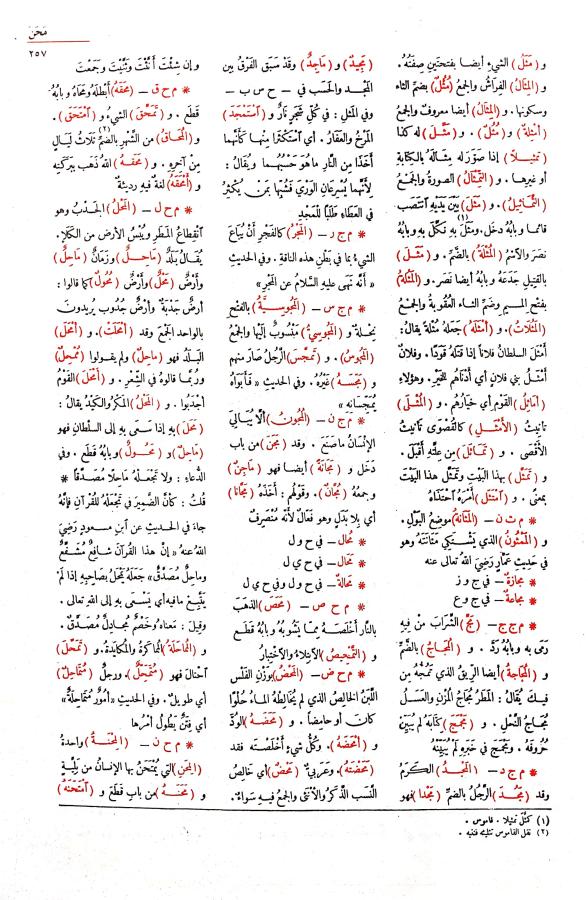 مَحَنَ
٢٥٧
و (مَثَلُ) الشيءِ أيضا بفتحتينِ صِفَتُهُ.
و (المِثَالُ) الفِراشُ والجمعُ (مُثُلٌ) بضمِّ الثاء
وسكونها. و (المِثَالُ) أيضا معروفٌ والجمعُ
(أمْثِلَةٌ) و (مُثُلٌ). و (مَثَّلَ) له كذا
(تَمْثِيلاً) إذا صَوَّرَ له مِثالَهُ بالكِتابةِ
أو غيرِها. و (التِّمْثَالُ) الصورةُ والجمْعُ
(التَّمَاثِيلُ). و (مَثَلَ) بَيْنَ يَدَيْهِ انْتَصَبَ
قائمًا وبابُهُ دخل. ومَثَلَ بِهِ نَكَّلَ بِهِ وبابُهُ
نَصَرَ والاسمُ (المُثْلَةُ) بالضَّمِّ. و (مَثَلَ)
بالقَتِيلِ جَدَعَهُ وبابُهُ أيضا نَصَر. و (المَثُلَةُ)
بفتح الميمِ وضمِّ الثاءِ العُقُوبَةُ والجمعُ
(المَثُلاتُ). و (أمْثَلَهُ) جَعَلَهُ مُثْلَةً يقالُ:
أمْثَلَ السلطانُ فلاناً إذا قَتَلَهُ قَوَدًا. وفلانٌ
أمْثَلُ بني فلانٍ أي أدْناهُم للخيرِ. وهؤلاءِ
(أماثِلُ) القومِ أي خِيارُهم. و (المُثْلَى)
تأنيثُ (الأمْثَلِ) كالقُصْوَى تأنيثُ
الأقْصَى. و (تَمَاثَلَ) مِنْ عِلَّتِهِ أقْبَلَ.
و (تَمَثَّلَ) بهذا البَيْتِ وتَمَثَّلَ هذا البَيْتَ
بمعنًى. و (امْتَثَلَ) أمْرَهُ احْتَذَاهُ
* م ث ن – (المَثَانَةُ) موضِعُ البَوْلِ.
و (المَمْثُونُ) الذي يَشْتَكِي مَثَانَتَهُ وهو
في حديثِ عَمَّارٍ رَضِيَ اللهُ تعالى عنه
* مجازة – في ج و ز
* مجاعة – في ج و ع
* م ج ج – (مَجَّ) الشَّرابَ مِنْ فِيهِ
رَمَى به وبابُهُ رَدَّ. و (المُجَاجُ) بالضَّمِّ
و (المُجَاجَةُ) أيضا الرِّيقُ الذي تَمُجُّهُ مِنْ
فِيكَ يُقالُ: المَطَرُ مُجَاجُ المُزْنِ والعَسَلُ
مُجَاجُ النَّحْلِ. و (مَجْمَجَ) كِتابَهُ لم يُبَيِّنْ
حُرُوفَهُ. ومَجْمَجَ في خَبَرِهِ لم يُبَيِّنْهُ
* م ج د – (المَجْدُ) الكَرَمُ
وقد (مَجُدَ) الرَّجُلُ بالضَّمِّ (مَجْدًا) فهو
(مَجِيدٌ) و (ماجِدٌ) وقَدْ سَبَقَ الفَرْقُ بين
المَجْدِ والحَسَبِ في – ح س ب –
وفي المَثَلِ: في كُلِّ شَجَرٍ نَارٌ و (اسْتَمْجَدَ)
المَرْخُ والعَفَارُ. أي اسْتَكْثَرَا منها كأنَّهما
أخَذَا مِنَ النَّارِ ماهُوَ حَسْبُهُما ويُقالُ:
لِأنَّهما يُسْرِعانِ الوَرْيَ فشُبِّها بمَنْ يُكْثِرُ
في العَطَاءِ طَلَبًا للمَجْدِ
* م ج ر – (المَجْرُ) كالفَجْرِ أنْ يُبَاعَ
الشيءُ بما في بَطْنِ هذه الناقةِ. وفي الحديثِ
« أنَّه نَهَى عليه السَّلامُ عن المَجْرِ»
* م ج س – (المَجُوسِيَّةُ) بالفتحِ
نِحْلَةٌ و (المَجُوسِيُّ) مَنْسُوبٌ إليها والجمعُ
(المَجُوسُ). و (تَمَجَّسَ) الرَّجُلُ صارَ منهم
و (مَجَّسَهُ) غَيْرُهُ. وفي الحديثِ « فأبَوَاهُ
يُمَجِّسَانِهِ »
* م ج ن – (المُجُونُ) ألَّا يُبَالِيَ
الإنْسانُ ماصَنَعَ. وقد (مَجَنَ) من باب
دَخَلَ و (مَجَانَةً) أيضا فهو (ماجِنٌ)
وجمعُهُ (مُجَّانٌ). وقولُهم: أخَذَهُ (مَجَّانًا)
أي بِلَا بَدَلٍ وهو فَعَّالٌ لأنَّه مُنْصَرِفٌ
* مُحَال – في ح و ل
* مَحَال – في ح ي ل
* مَحَالة – في ح و ل وفي ح ي ل
* م ح ص – (مَحَصَ) الذهَبَ
بالنَّارِ أخْلَصَهُ مِمّا يَشُوبُهُ وبابُهُ قَطَع
و (التَّمْحِيصُ) الابْتِلاءُ والاخْتِبارُ
* م ح ض – (المَحْضُ) بوَزْنِ الفَلْسِ
اللَّبَنُ الخالِصُ الذي لم يُخالِطْهُ الماءُ حُلْوًا
كان أو حامِضًا. و (مَحَضَهُ) الوُدَّ
و (أمْحَضَهُ). وكُلُّ شيءٍ أخْلَصْتَهُ فقد
(مَحَضْتَهُ). وعَرَبِيٌّ (مَحْضٌ) أي خالِصُ
النَّسَبِ الذَّكَرُ والأُنْثَى والجمعُ فيهِ سَواءٌ.
وإن شِئْتَ أنَّثْتَ وثَنَّيْتَ وجَمَعْتَ
* م ح ق – (مَحَقَهُ) أبْطَلَهُ ومَحَاهُ وبابُهُ
قَطَع. و (تَمَحَّقَ) الشيءُ و (امْتَحَقَ).
و (المُحَاقُ) من الشَّهْرِ بالضَّمِّ(٢) ثلاثُ لَيَالٍ
مِنْ آخِرِهِ. و (مَحَقَهُ) اللهُ ذَهَبَ ببَرَكَتِهِ
و (أمْحَقَهُ) لُغةٌ فيه رديئةٌ
* م ح ل – (المَحْلُ) الجَدْبُ وهو
انْقِطاعُ المَطَرِ ويُبْسُ الأرضِ من الكَلَإِ.
يقالُ بَلَدٌ (ماحِلٌ) وزَمَانٌ (ماحِلٌ)
وأرضٌ (مَحْلٌ) وأرْضٌ (مُحُولٌ) كما قالوا:
أرضٌ جَدْبةٌ وأرضٌ جُدُوبٌ يريدون
بالواحدِ الجمْعَ وقد (أمْحَلَتْ). و (أمْحَلَ)
البَلَدُ فهو (ماحِلٌ) ولم يقولوا (مُمْحِلٌ)
ورُبَّما قالوهُ في الشِّعْرِ. و (أمْحَلَ) القَوْمُ
أجْدَبُوا. و (المَحْلُ) المَكْرُ والكَيْدُ يقالُ:
(مَحَلَ) بِهِ إذا سَعَى بِهِ إلى السُّلْطانِ فهو
(ماحِلٌ) و (مَحُولٌ) وبابُهُ قَطَع. وفي
الدُّعاءِ: ولا تَجْعَلْهُ ماحِلًا مُصَدَّقًا *
قلتُ: كأنَّ الضَّمِيرَ في تَجْعَلْهُ للقُرآنِ فإنَّهُ
جاءَ في الحديثِ عن ابنِ مسعودٍ رَضِيَ
اللهُ عنهُ « إنَّ هذا القُرآنَ شافِعٌ مُشَفَّعٌ
وماحِلٌ مُصَدَّقٌ » جَعَلَهُ يَمْحَلُ بصاحِبِهِ إذا لم
يَتَّبِعْ مافيه أي يَسْعَى به إلى اللهِ تعالى.
وقيل: معناهُ وخَصْمٌ مُجادِلٌ مُصَدَّقٌ.
و (المُمَاحَلَةُ) المُماكَرَةُ والمُكايَدَةُ. و (تَمَحَّلَ)
احْتالَ فهو (مُتَمَحِّلٌ). ورجُلٌ (مُتَمَاحِلٌ)
أي طويلٌ. وفي الحديثِ «أُمُورٌ مُتَمَاحِلَةٌ»
أي فِتَنٌ يطُولُ أمْرُها
* م ح ن – (المِحْنَةُ) واحدةُ
(المِحَنِ) التي يُمْتَحَنُ بها الإنسانُ من بَلِيَّةٍ
و (مَحَنَهُ) من بابِ قَطَع و (امْتَحَنَهُ)
(١) كمَثَّل تمثيلا. قاموس.
(٢) نقل القاموس تثليثه فتنبه.